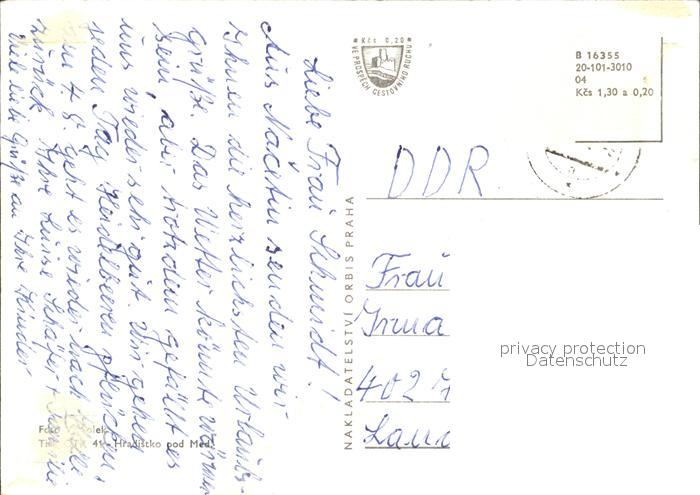 Liebe Frau Schmidt!
Aus Načetin senden wir
Ihnen die herzlichsten Urlaubs-
grüße. Das Wetter könnte wärmer
sein, aber trotzdem gefällt es
uns wieder sehr gut. Wir gehen
jeden Tag Heidelbeeren pflücken.
Am 4.8. geht es wieder nach
zurück. Ihre Luise Schäfer +
Viele liebe Grüße an Ihre Kinder
Kčs 0,20
VE PROSPĚCH CESTOVNÍHO RUCHU
B 16355
20-101-3010
04
Kčs 1,30 a 0,20
DDR
Frau
Irma
402
NAKLADATELSTVÍ ORBIS PRAHA
41, Hradištko pod Med.
privacy protection
Datenschutz